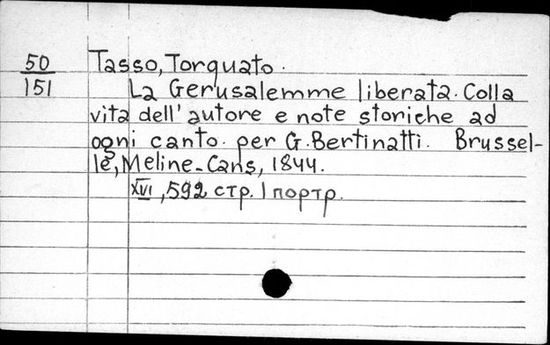 50
151
Tasso, Torquato.
La Gerusalemme liberata. Colla
vita dell' autore e note storiche ad
ogni canto. per G. Bertinatti. Brussel-
le, Meline-Cans, 1844.
XVI, 592 стр. 1 портр.